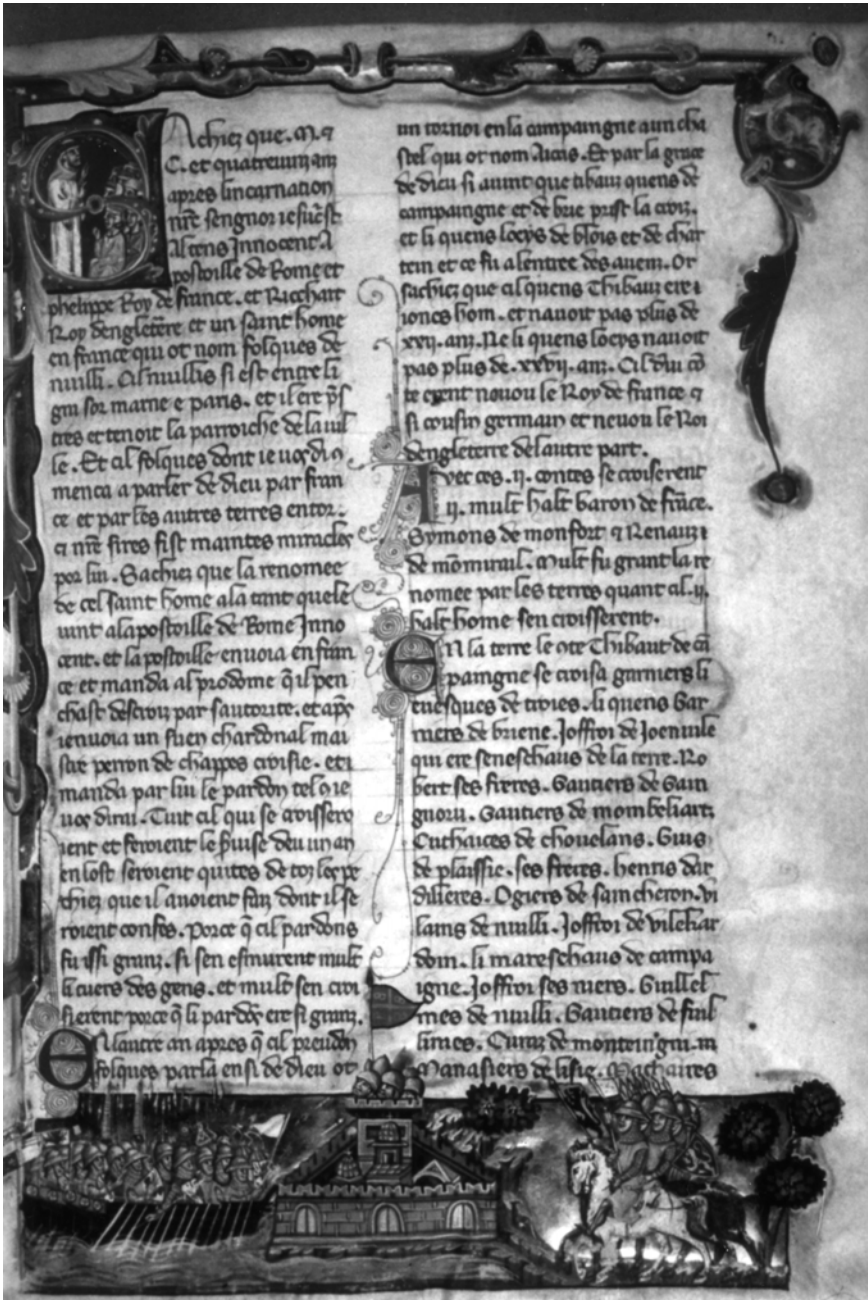 Achiez que. M. ⁊
C. et quatreuinz anz
apres lincarnation
nr̄e sengnor ieſucſt
Al tens Innocent A
postoille de Rome et
phelippe Roy de france. et Ricchart
Roy dengleterre et un saint home
en france qui ot nom folques de
nuilli. Cil nuillis si est entre li
gni sor marne e paris. et il ere p̄s
tres et tenoit la parroiche de la uil
le. Et cil folques dont ie uos di 9
menca a parler de dieu par fran
ce et par les autres terres entor.
⁊ nr̄e sires fist maintes miracles
por lui. Sachiez que la renomee
de cel saint home ala tant quele
uint alapostoille de Rome Inno
cent. et lapostoille enuoia en fran
ce et manda al prodome q̄ il pen
chast des croiz par sautorite. et aps̄
ienuoia un suen chardonal mai
stre perron de chappes croisie. et i
manda par lui le pardon tel q̄ ie
uos dirai. Tuit cil qui se croissero
ient et feroient le ſuise deu un an
en lost seroient quites de toz les pe
chiez que il auoient faiz dont il se
roient confes. Porce q̄ cil pardons
fu issi granz. si sen esmurent mult
li cuers des gens. et mult sen croi
sierent porce q̄ li pardōs ere si granz.
En lautre an apres q̄ cil preudom
folques parla ensi de dieu ot
un tornoi en la campaingne a un cha
stel qui ot nom Aicris. Et par la grace
de dieu si auint que tibauz quens de
campaingne et de brie prist la croiz.
et li quens looys de blois et de char
tein et ce fu a lentree des auenz. Or
sachiez que cil quens Thibauz ere i
iones hom. et nauoit pas plus de
xxij. anz. Ne li quens looys nauoit
pas plus de. xxvij. anz. Cil dui cō
te erent neuou le Roy de france ⁊
si cousin germain et neuou le Roi
dengleterre de lautre part.
Auec ces. ij. contes se croiserent
ij. mult halt baron de frāce.
Symons de monfort ⁊ Renauz
de mōmirail. Mult fu grant la re
nomee par les terres quant cil. ij.
halt home sen croisserent.
En la terre le 9te Thibaut de cā
paingne se croisa garniers li
euesques de troies. li quens Gar
niers de briene. Joffroi de Joenuile
qui ere seneschaus de la terre. Ro
bert ses freres. Gautiers de Gain
gnoru. Gautiers de mombeliart
Euthaices de chouelans. Guis
de plaissie. ses freres. henris dar
dilieres. Ogiers de saincheron. Vi
lains de nuilli. Joffroi de vilehar
doin. li mareschaus de campa
igne. Joffroi ses niers. Guillel
mes de nuilli. Gautiers de fuil
limes. Curaz de montein'gni. m
Manasiers de lisie. Machaires